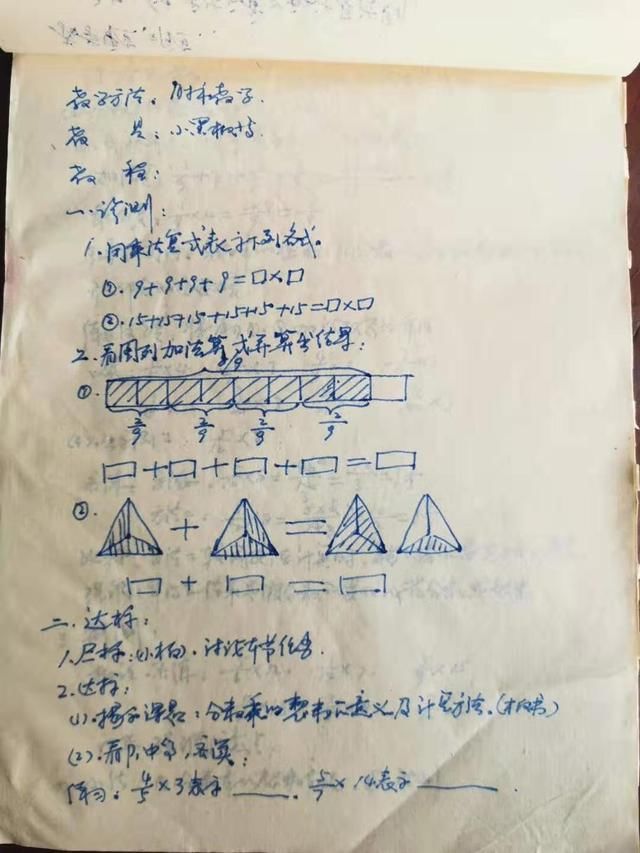 教学方法：目标教学.
教 具：小黑板等.
教 程：
一.诊测：
1.用乘法算式表示下列各式。
①.9+9+9+9=□×□
②.15+15+15+15+15+15=□×□
2.看图列加法算式并算出结果：
①.
2/9 2/9 2/9 2/9
□+□+□+□=□
②. + =
□ + □ = □
二.达标：
1.展标：(小板).讨论本节任务.
2.达标：
(1).揭示课题：分数乘以整数的意义及计算方法.(板书)
(2).看
练习：4/5×3表示 ____. 5/7×14表示 ____